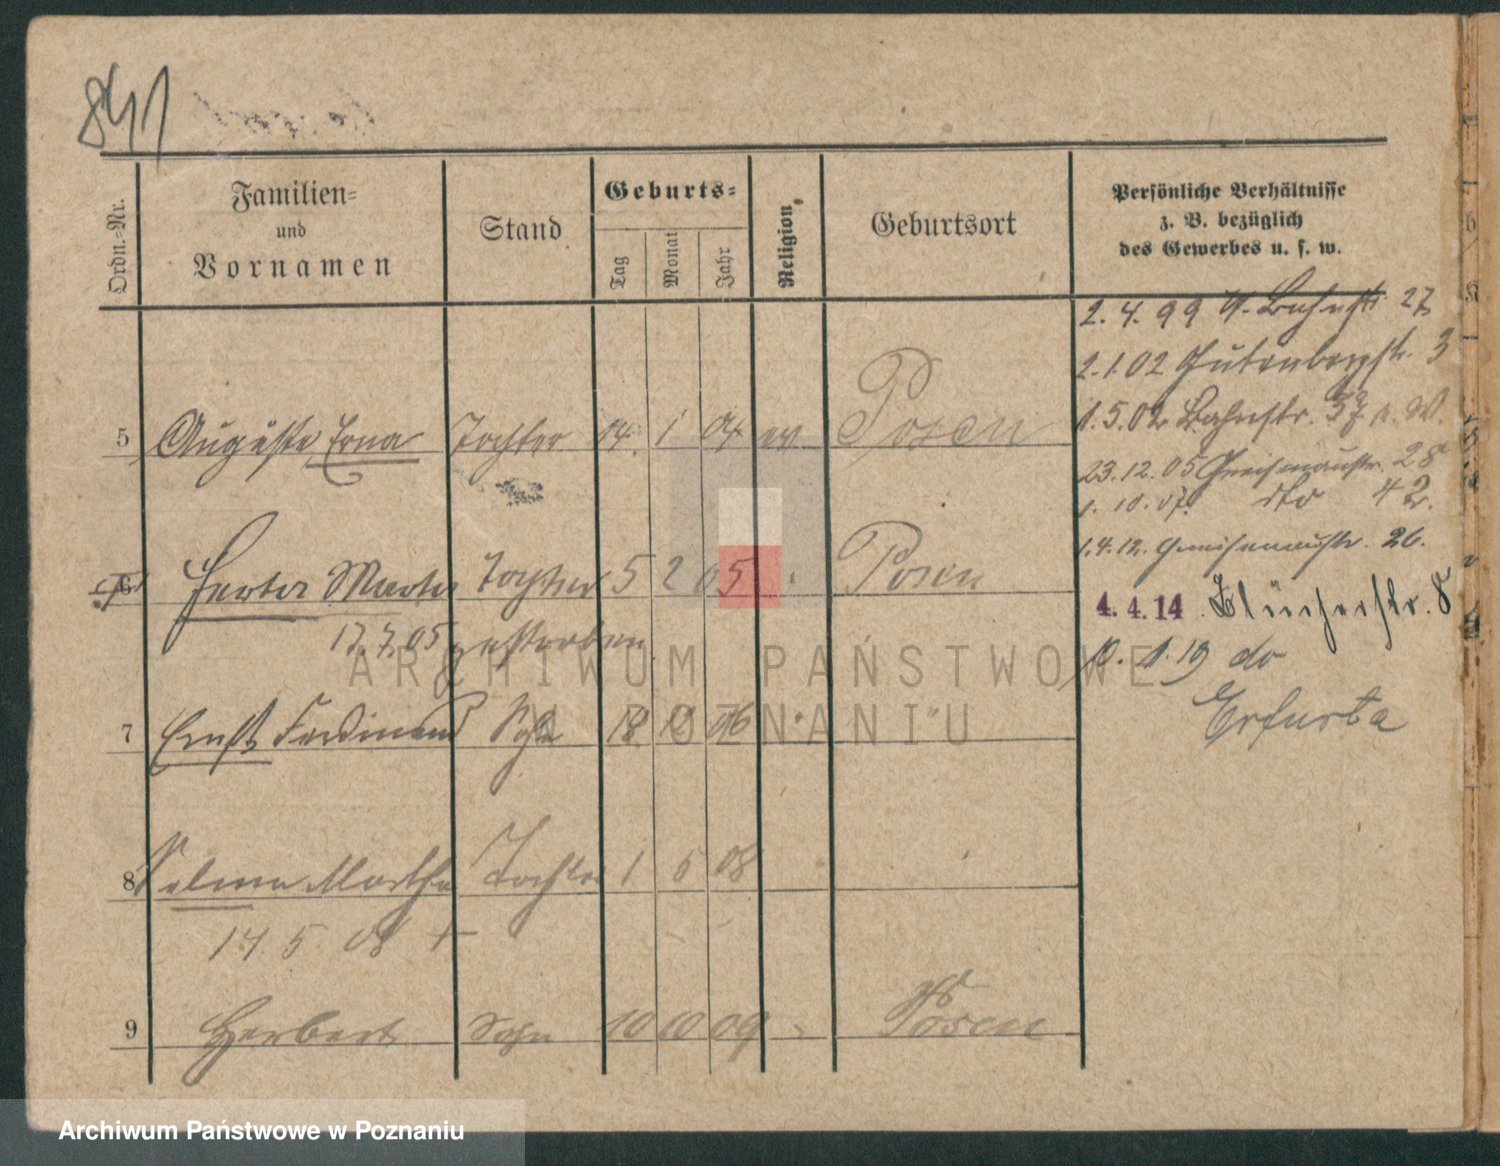 841
Ordn.-Nr.
Familien-
und
Vornamen
Stand
Geburts-
Tag
Monat
Jahr
Religion
Geburtsort
Persönliche Verhältnisse
z. B. bezüglich
des Gewerbes u. s. w.
2. 4. 99 W. Bahnstr. 27
2. 1. 02 Gutenbergstr. 3
1. 5. 02 Bahnstr. 37
23. 12. 05 Gneisenaustr. 28
1. 10. 07. dto 42.
1. 4. 12. Gneisenaustr. 26.
4. 4. 14 Blücherstr. 8
10. 1. 19 do
Erfurta
5 Auguste Erna Tochter 04. 1 04 ev Posen
6 Herta Marta Tochter 5 2 05 Posen
17. 7. 05 gestorben
7 Ernst Ferdinand Sohn 18. 10 06 "
8 Selma Martha Tochter 1 5 08
14 5. 08 †
9 Herbert Sohn 10 10 09 Posen
ARCHIWUM PAŃSTWOWE
W POZNANIU
Archiwum Państwowe w Poznaniu